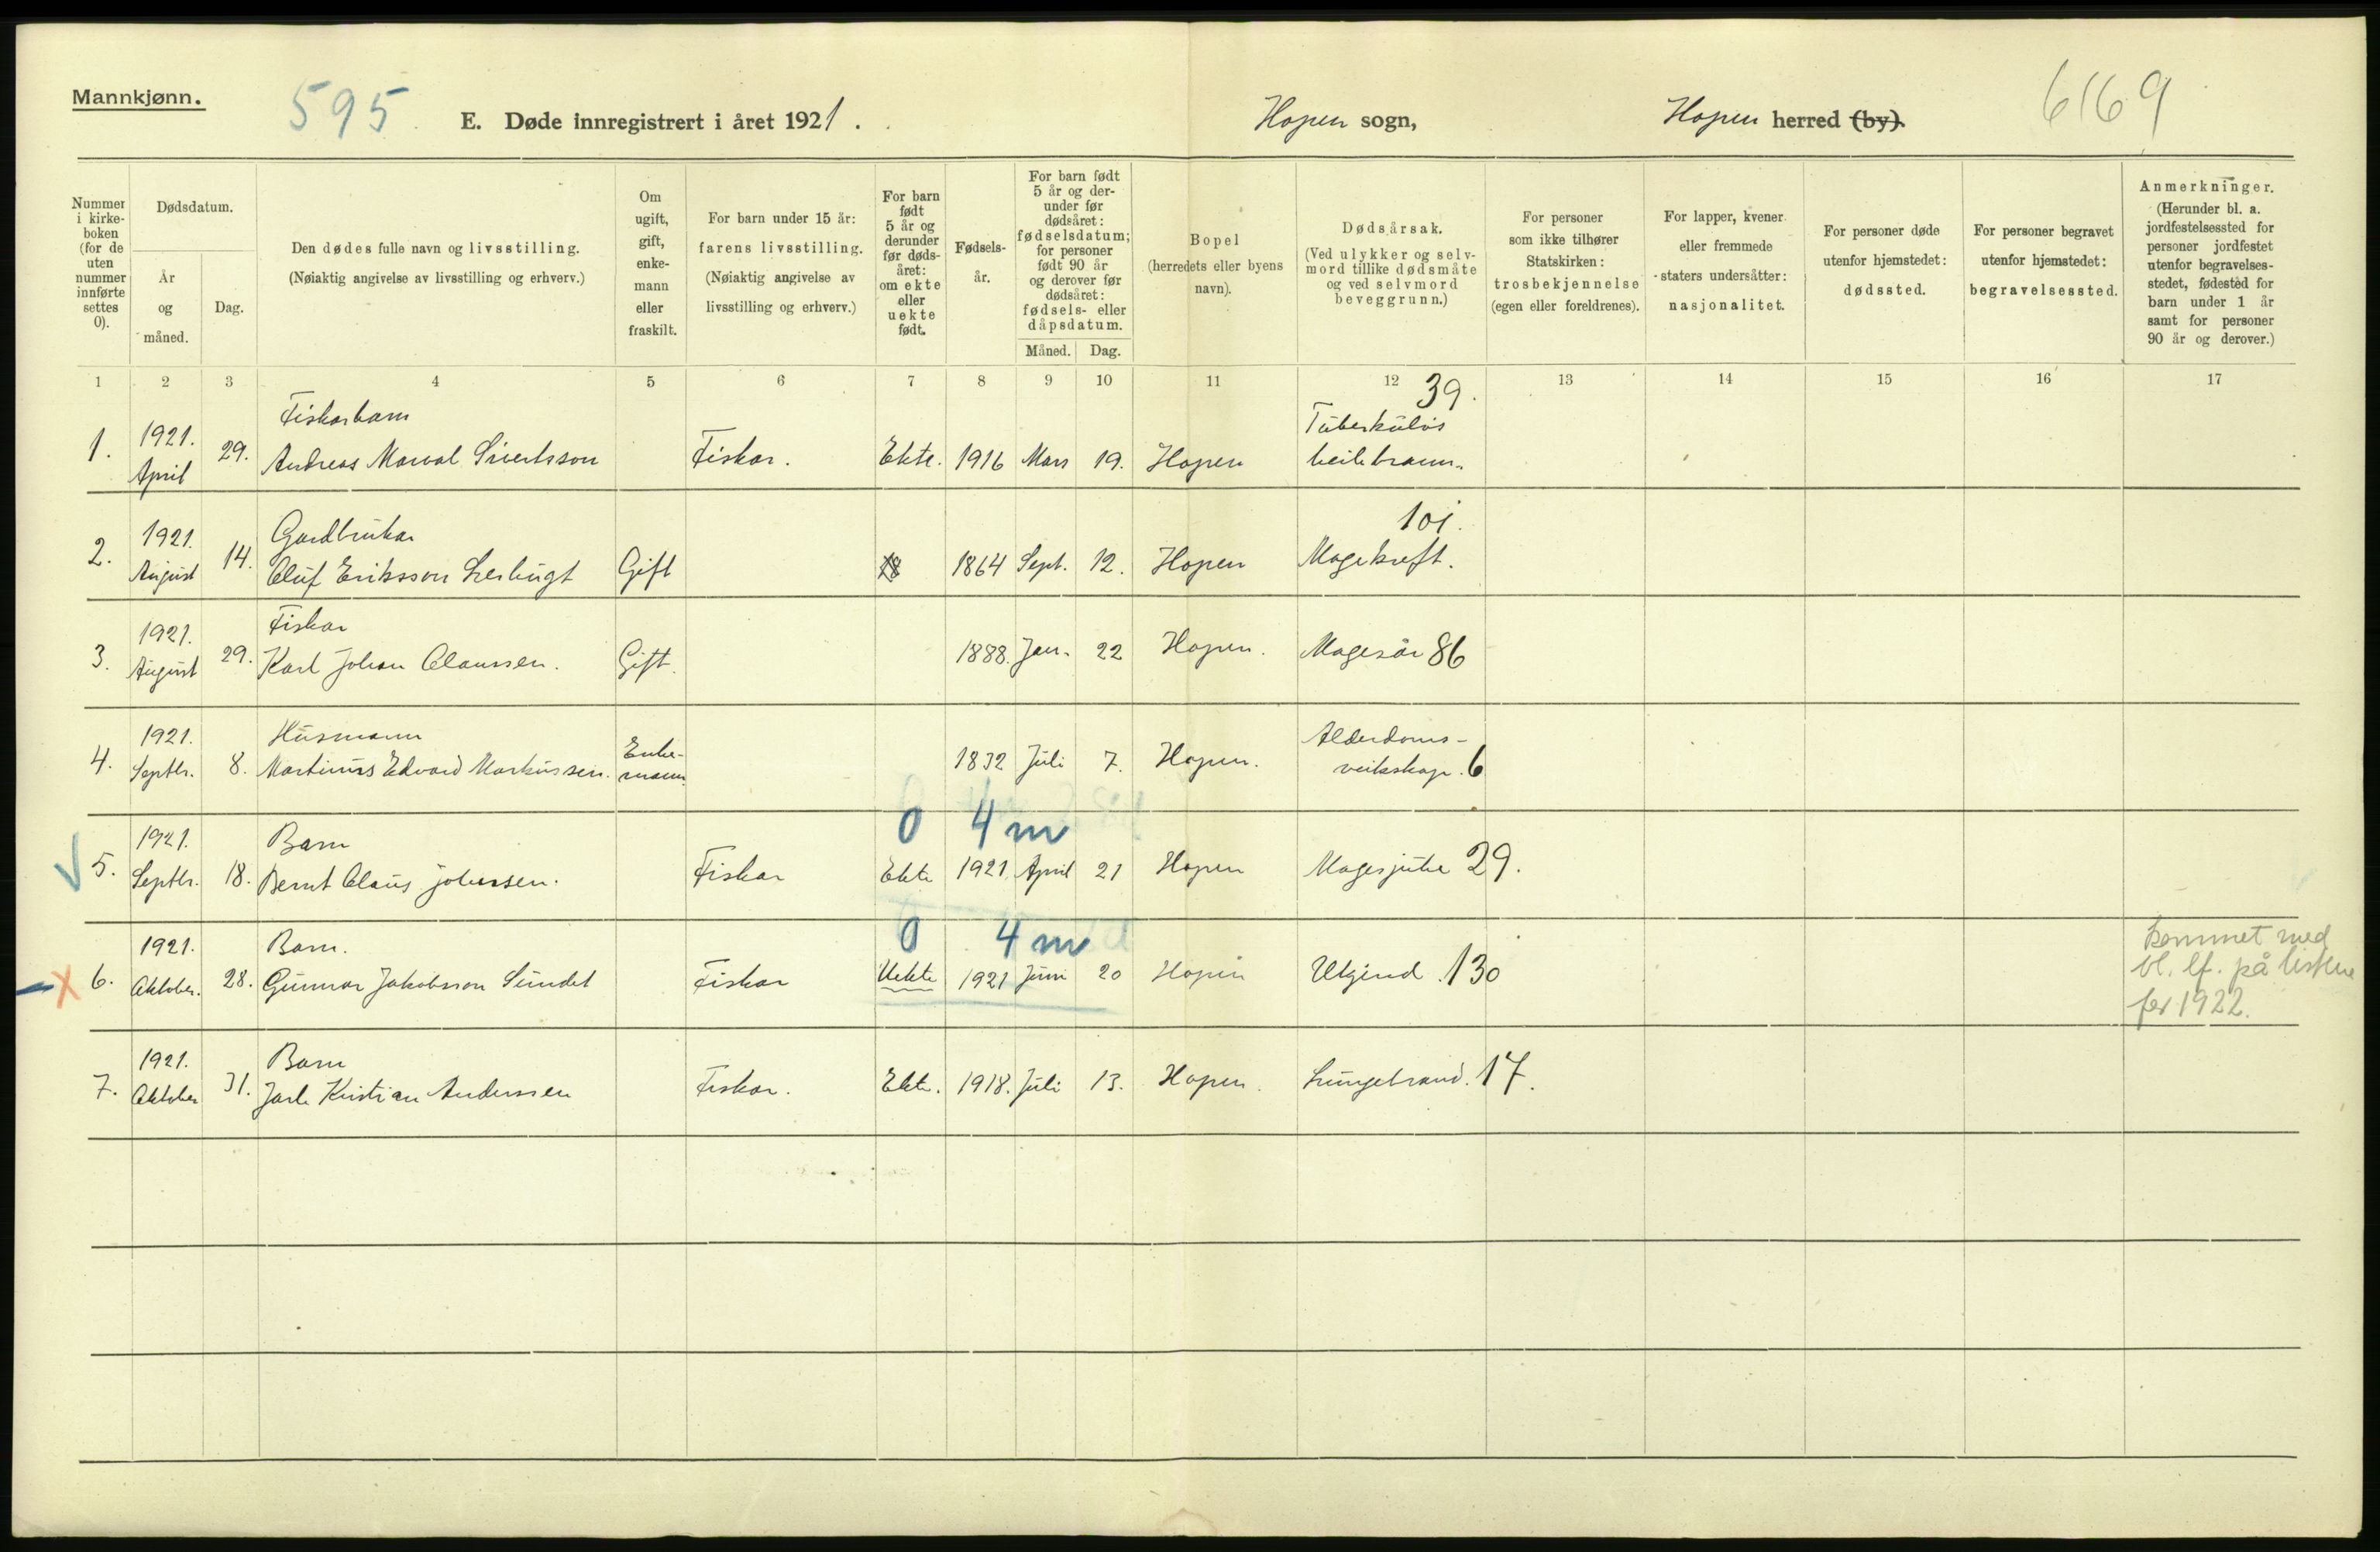 Mannkjønn.
595
E. Døde innregistrert i året 1921.
Hopen sogn,
Hopen herred (by).
6169
Nummer i kirke-boken (for de uten nummer innførte settes 0).
Dødsdatum.
År og måned.
Dag.
Den dødes fulle navn og livsstilling.
(Nøiaktig angivelse av livsstilling og erhverv.)
Om ugift, gift, enke-mann eller fraskilt.
For barn under 15 år:
farens livsstilling.
(Nøiaktig angivelse av livsstilling og erhverv.)
For barn født 5 år og derunder før døds-året: om ekte eller uekte født.
Fødsels-år.
For barn født 5 år og der-under før dødsåret: fødselsdatum; for personer født 90 år og derover før dødsåret: fødsels- eller dåpsdatum.
Måned.
Dag.
Bopel
(herredets eller byens navn).
Dødsårsak.
(Ved ulykker og selv-mord tillike dødsmåte og ved selvmord beveggrunn.)
For personer som ikke tilhører Statskirken: trosbekjennelse (egen eller foreldrenes).
For lapper, kvener eller fremmede staters undersåtter: nasjonalitet.
For personer døde utenfor hjemstedet: dødssted.
For personer begravet utenfor hjemstedet: begravelsessted.
Anmerkninger.
(Herunder bl. a. jordfestelsessted for personer jordfestet utenfor begravelses-stedet, fødested for barn under 1 år samt for personer 90 år og derover.)
1 2 3 4 5 6 7 8 9 10 11 12 13 14 15 16 17
39.
Fiskarbarn Tuberkuløs
1. 1921. April 29. Andreas Marval Sivertsson Fiskar. Ekte. 1916 Mars 19. Hopen heilebraun.
101.
Gardbrukar
2. 1921. August 14. Oluf Eriksson Leirbugt Gift 1864 Sept. 12. Hopen Magekreft.
Fiskar
3. 1921. August 29. Karl Johan Claussen. Gift. 1888. Jan. 22 Hopen. Magesår 86
Husmann Alderdoms-
4. 1921. Septbr. 8. Martinus Edvard Markussen. Enke-mann. 1832 Juli 7. Hopen. veikskap. 6
0 4 m
Barn
5. 1921. Septbr. 18. Bernt Claus Johnsen. Fiskar Ekte 1921 April 21 Hopen Magesjuke 29.
0 4 m
Barn.
6. 1921. Oktober. 28. Gunnar Jakobsson Sundet Fiskar Uekte 1921 Juni 20 Hopen Ukjend. 130
kommet med
bl. lf. på listene
for 1922.
Barn
7. 1921. Oktober 31. Jarle Kristian Anderssen Fiskar. Ekte. 1918. Juli 13. Hopen. Lungebrand. 17.